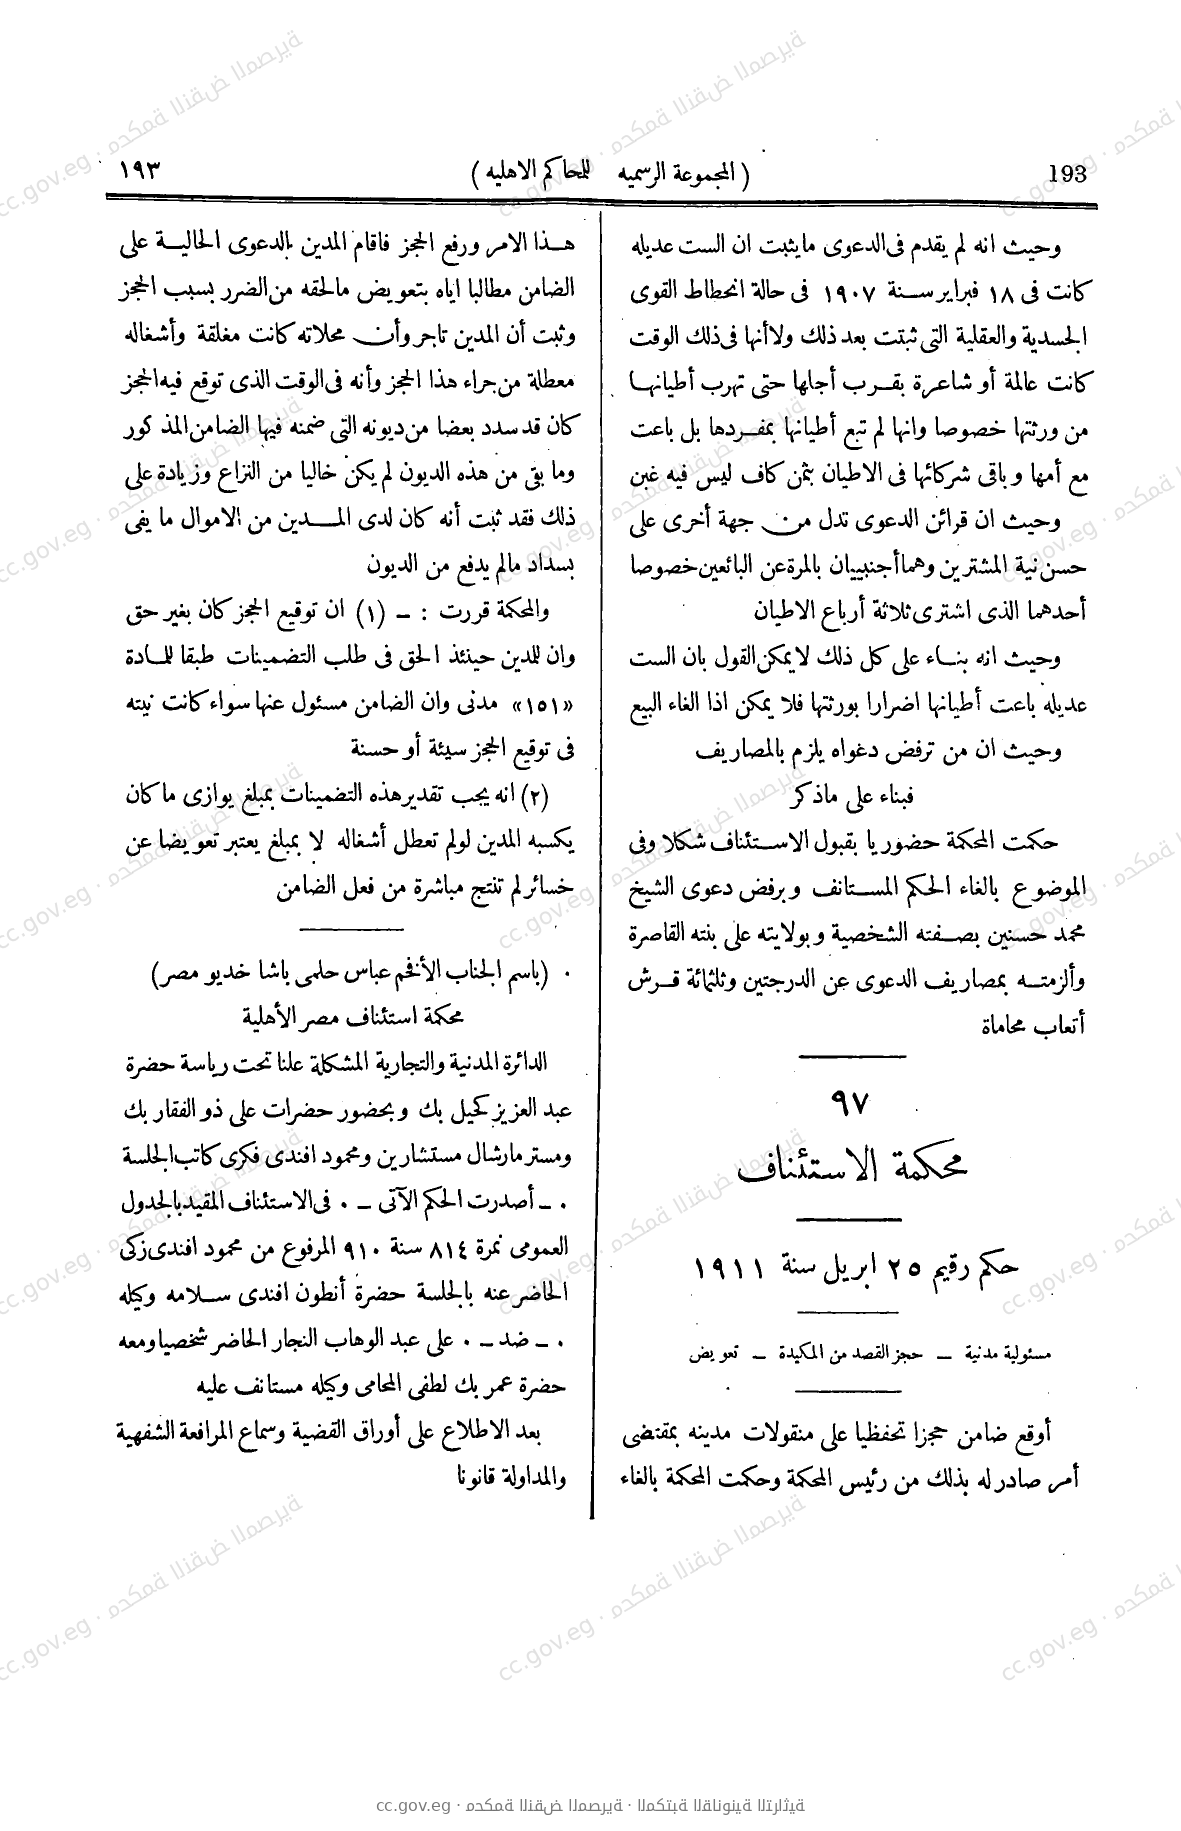 193
( المجموعة الرسميه للمحاكم الاهليه )
١٩٣
وحيث انه لم يقدم فى الدعوى مايثبت ان الست عديله
كانت فى ١٨ فبراير سنة ١٩٠٧ فى حالة انحطاط القوى
الجسدية والعقلية التى ثبتت بعد ذلك ولاأنها فى ذلك الوقت
كانت عالمة أو شاعرة بقرب أجلها حتى تهرب أطيانها
من ورثتها خصوصا وانها لم تبع أطيانها بمفردها بل باعت
مع أمها وباقى شركائها فى الاطيان بثمن كاف ليس فيه غبن
وحيث ان قرائن الدعوى تدل من جهة أخرى على
حسن نية المشترين وهما أجنبييان بالمرة عن البائعين خصوصا
أحدهما الذى اشترى ثلاثة أرباع الاطيان
وحيث انه بناء على كل ذلك لايمكن القول بان الست
عديله باعت أطيانها اضرارا بورثتها فلا يمكن اذا الغاء البيع
وحيث ان من ترفض دعواه يلزم بالمصاريف
فبناء على ماذكر
حكمت المحكمة حضوريا بقبول الاستئناف شكلا وفى
الموضوع بالغاء الحكم المستانف وبرفض دعوى الشيخ
محمد حسنين بصفته الشخصية وبولايته على بنته القاصرة
وألزمته بمصاريف الدعوى عن الدرجتين وثلثمائة قرش
أتعاب محاماة
٩٧
محكمة الاستئناف
حكم رقيم ٢٥ ابريل سنة ١٩١١
مسئولية مدنية — حجز القصد من المكيدة — تعويض
أوقع ضامن حجزا تحفظيا على منقولات مدينه بمقتضى
أمر صادر له بذلك من رئيس المحكمة وحكمت المحكمة بالغاء
هذا الامر ورفع الحجز فاقام المدين بالدعوى الحالية على
الضامن مطالبا اياه بتعويض مالحقه من الضرر بسبب الحجز
وثبت أن المدين تاجر وأن محلاته كانت مغلقة وأشغاله
معطلة من جراء هذا الحجز وأنه فى الوقت الذى توقع فيه الحجز
كان قد سدد بعضا من ديونه التى ضمنه فيها الضامن المذكور
وما بقى من هذه الديون لم يكن خاليا من النزاع وزيادة على
ذلك فقد ثبت أنه كان لدى المدين من الاموال ما يفى
بسداد مالم يدفع من الديون
والمحكمة قررت : — (١) ان توقيع الحجز كان بغير حق
وان للمدين حينئذ الحق فى طلب التضمينات طبقا للمادة
«١٥١» مدنى وان الضامن مسئول عنها سواء كانت نيته
فى توقيع الحجز سيئة أو حسنة
(٢) انه يجب تقدير هذه التضمينات بمبلغ يوازى ما كان
يكسبه المدين لولم تعطل أشغاله لا بمبلغ يعتبر تعويضا عن
خسائر لم تنتج مباشرة من فعل الضامن
٠ (باسم الجناب الأفخم عباس حلمى باشا خديو مصر)
محكمة استئناف مصر الأهلية
الدائرة المدنية والتجارية المشكلة علنا تحت رياسة حضرة
عبد العزيز كحيل بك وبحضور حضرات على ذو الفقار بك
ومستر مارشال مستشارين ومحمود افندى فكرى كاتب الجلسة
٠ — أصدرت الحكم الآتى — ٠ فى الاستئناف المقيد بالجدول
العمومى نمرة ٨١٤ سنة ٩١٠ المرفوع من محمود افندى زكى
الحاضر عنه بالجلسة حضرة أنطون افندى سلامه وكيله
٠ — ضد — ٠ على عبد الوهاب النجار الحاضر شخصيا ومعه
حضرة عمر بك لطفى المحامى وكيله مستانف عليه
بعد الاطلاع على أوراق القضية وسماع المرافعة الشفهية
والمداولة قانونا
cc.gov.eg · محكمة النقض المصرية · المكتبة القانونية التراثية